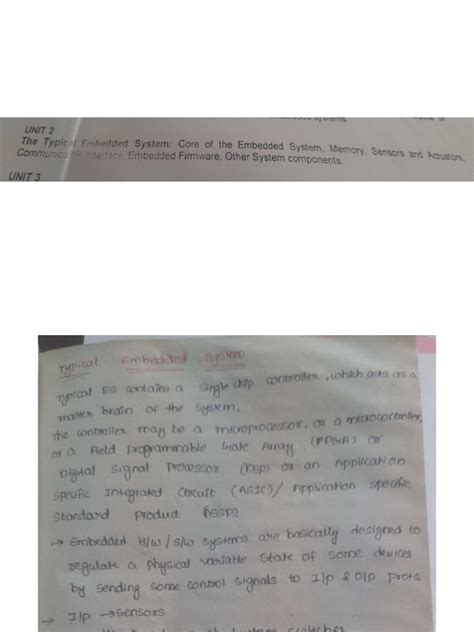 UNIT 2
The Typical Embedded System: Core of the Embedded System, Memory, Sensors and Actuators,
Communication Interface, Embedded Firmware, Other System components.
UNIT 3
Typical Embedded System
Typical ES contains a single chip controller, which acts as a
master brain of the system.
the controller may be a microprocessor, or a microcontroller,
or a Field programmable Gate Array (FPGA) or
Digital Signal Processor (DSP) or an Application
specific Integrated Circuit (ASIC)/ Application specific
Standard Product (ASSP)
→ Embedded H/w / S/w systems are basically designed to
regulate a physical variable state of some devices
by sending some control signals to I/p & O/p prots
→ I/p → sensors